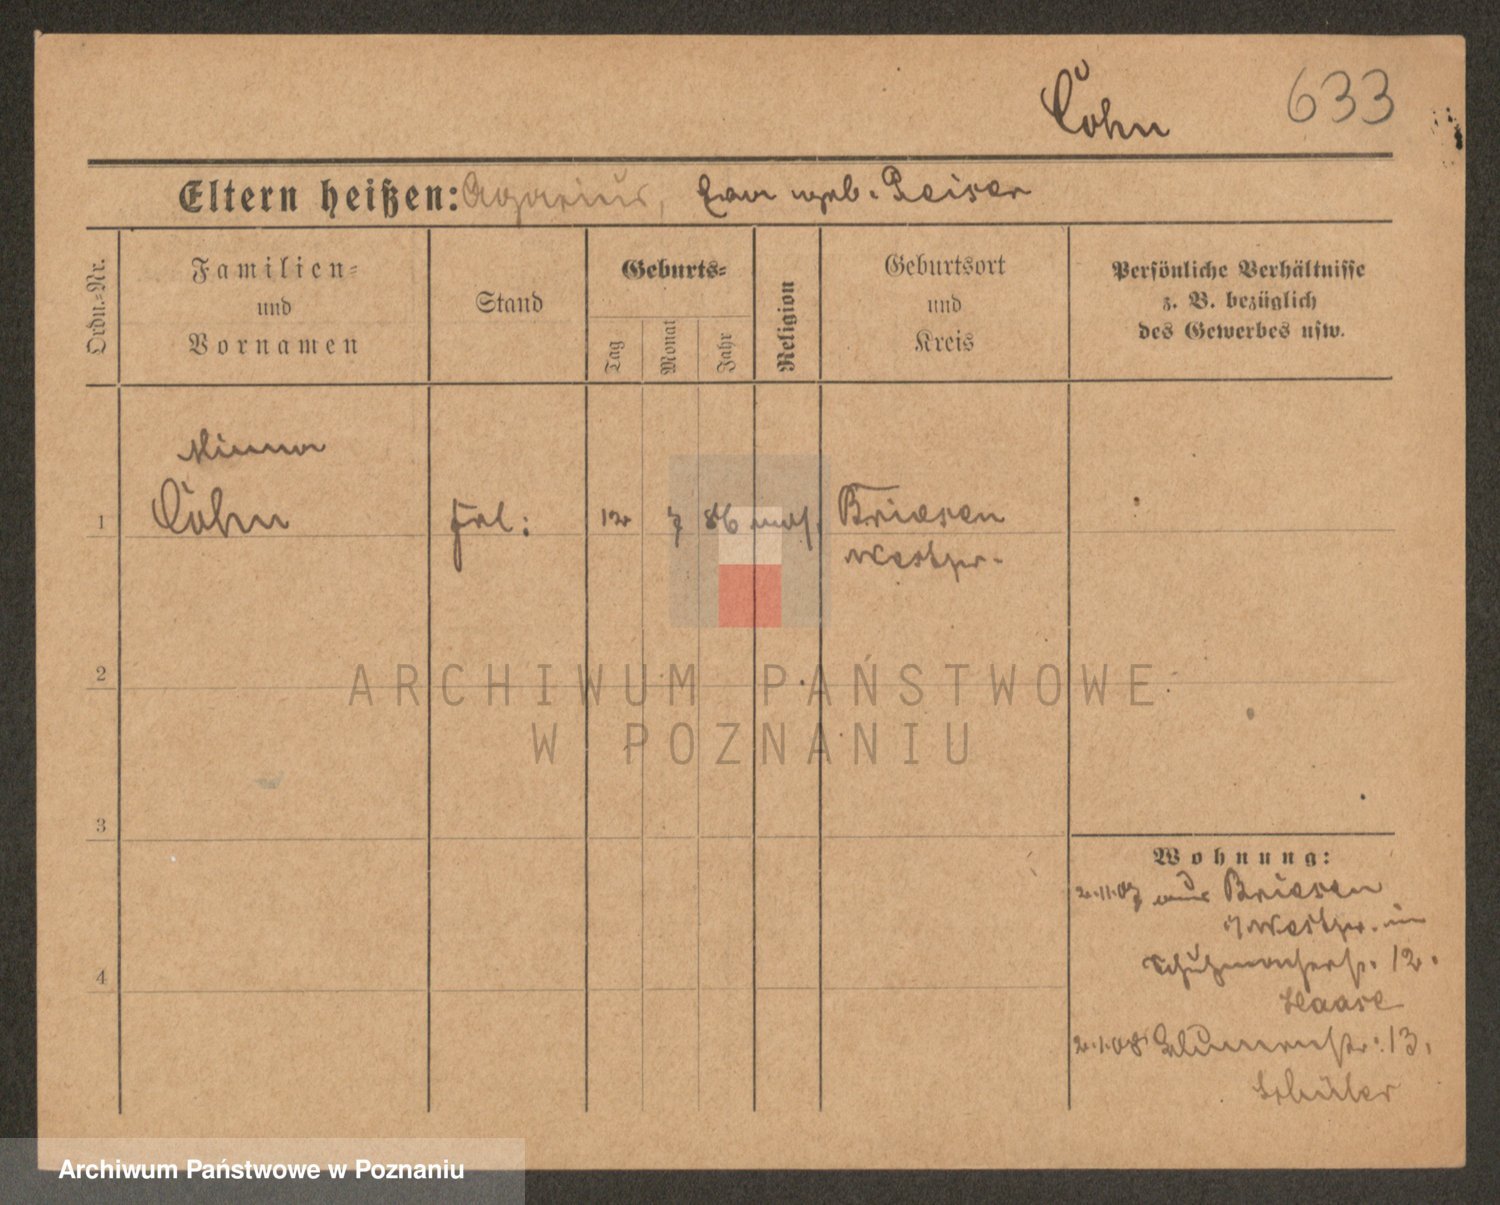 Cŏhn 633
Eltern heißen: Agarius, Frau geb. Peiser
Ordn.=Nr.
Familien=
und
Vornamen
Stand
Geburts=
Tag
Monat
Jahr
Religion
Geburtsort
und
Kreis
Persönliche Verhältnisse
z. B. bezüglich
des Gewerbes usw.
Minna
1 Cohn Frl: 12 7 86 mos. Briesen
Westpr.
2
ARCHIWUM PAŃSTWOWE
W POZNANIU
3
Wohnung:
2.11.07 aus Briesen
Westpr. in
12.
Haase
4
2.1.08 Blumenstr. 13.
Schüler
Archiwum Państwowe w Poznaniu